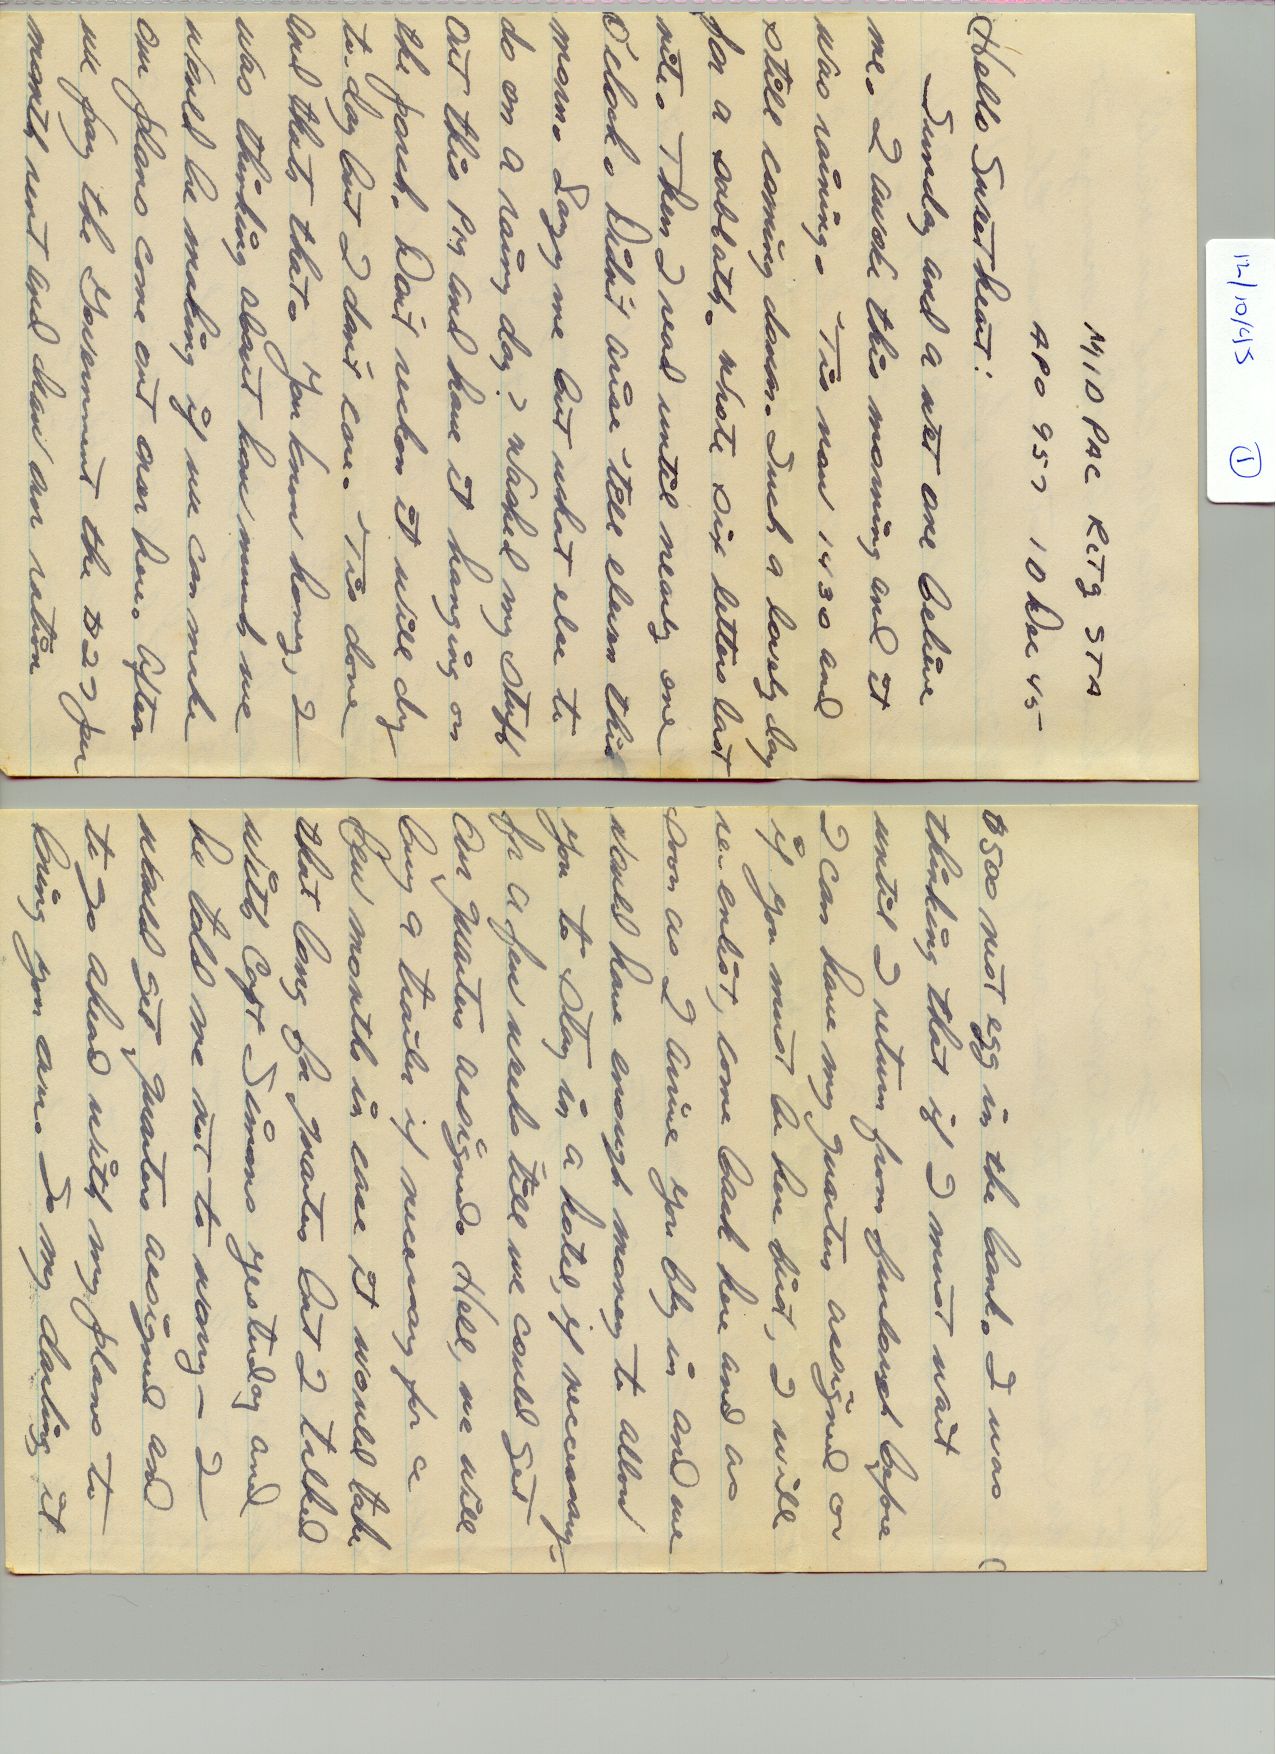 12/10/45 1
MIDPAC RCTG STA
APO 957 10 Dec 45
Hello Sweetheart:
Sunday and a wet one believe
me. I awoke this morning and it
was raining. 'Tis now 1430 and
still coming down. Such a lovely day
for a sabbath. Wrote six letters last
nite. Then I read until nearly one
O'clock. Didn't arise 'till eleven this
morn. Lazy me but what else to
do on a rainy day? Washed my stuff
out this and have it hanging on
the porch. Don't reckon it will dry
to-day but I don't care. 'Tis done
and thats that. You know honey, I
was thinking about how much we
would be making if we can make
our plans come out over here. After
we pay the Government the $27 per
month rent and draw our ration
$500 nest egg in the bank. I was
thinking that if I must wait
until I return from furlough before
I can have my quarters assigned or
if you must be here first, I will
re-enlist, come back here and as
soon as I arrive you fly in and we
would have enough money to allow
you to stay in a hotel, if necessary-
for a few weeks till we could get
our quarters assigned. Hell, we will
buy a trailer if necessary for a
few months in case it would take
that long for quarters but I talked
with Capt Simons yesterday and
he told me not to worry - I
would get quarters assigned and
to go ahead with my plans to
bring you over. So my darling it